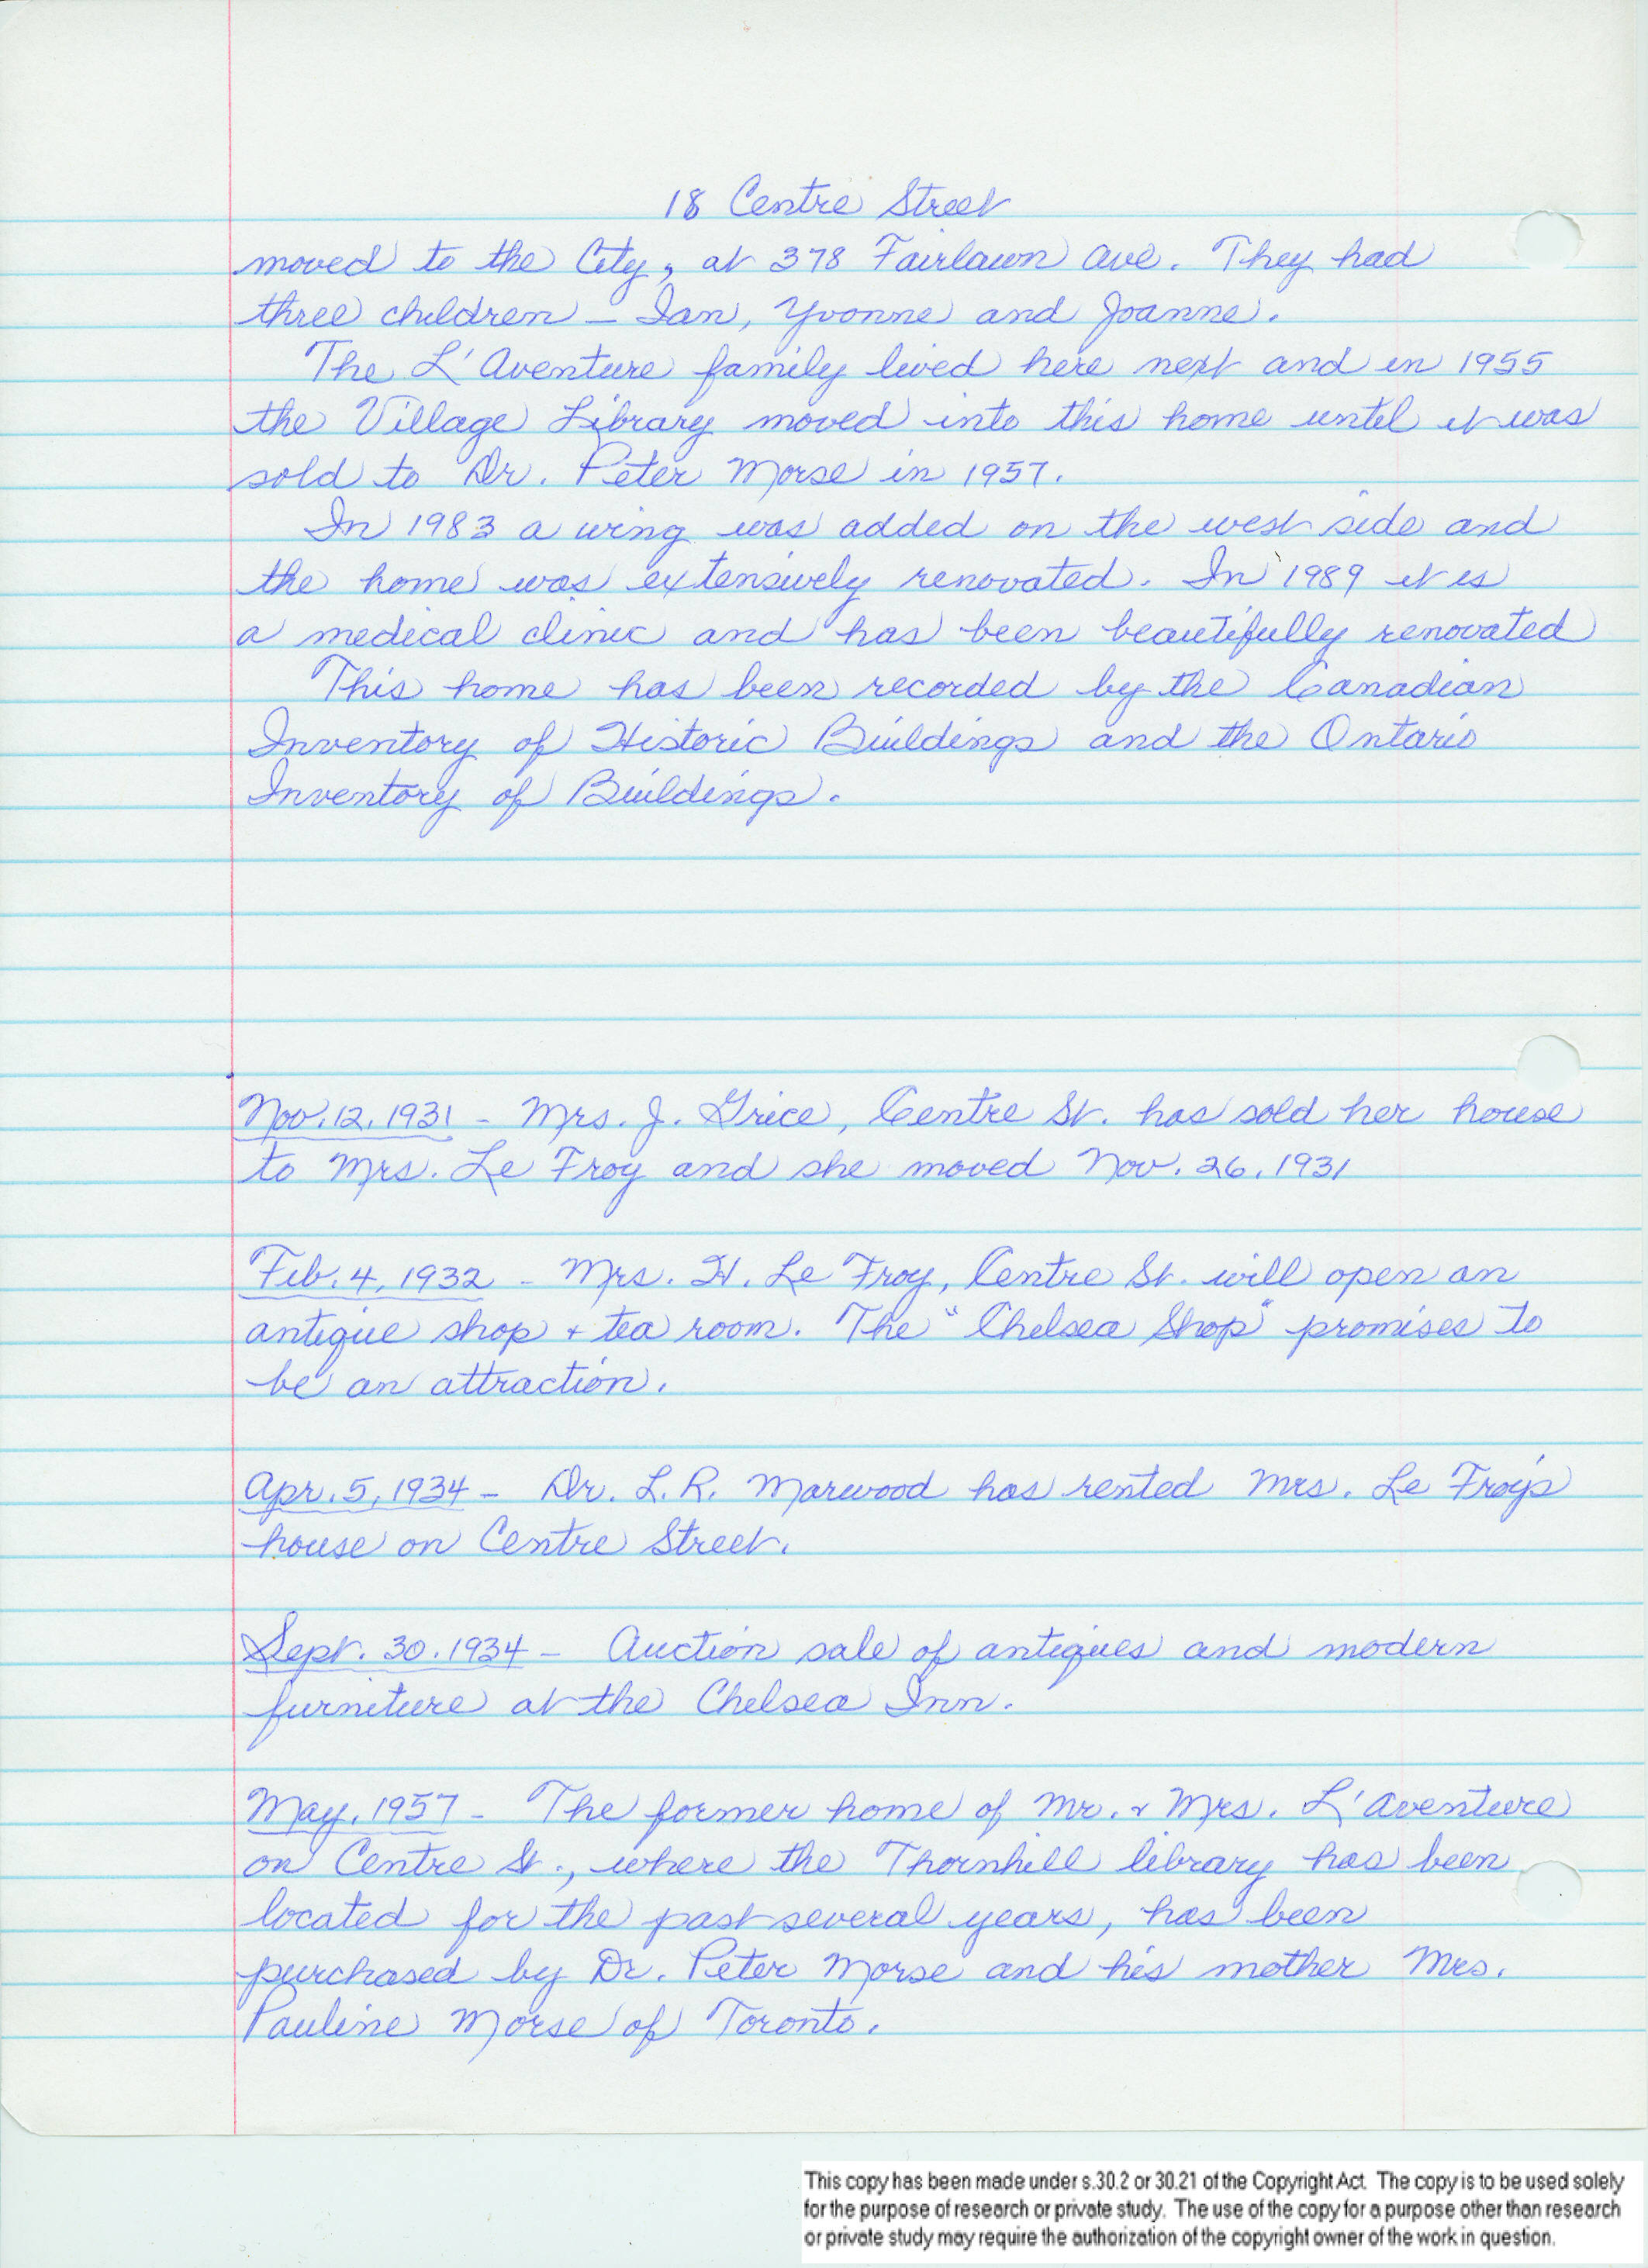 18 Centre Street
moved to the City, at 378 Fairlawn Ave. They had
three children - Ian, Yvonne and Joanne.
The L'Aventure family lived here next and in 1955
the Village Library moved into this home until it was
sold to Dr. Peter Morse in 1957.
In 1983 a wing was added on the west side and
the home was extensively renovated. In 1989 it is
a medical clinic and has been beautifully renovated
This home has been recorded by the Canadian
Inventory of Historic Buildings and the Ontario
Inventory of Buildings.
Nov. 12, 1931 - Mrs. J. Grice, Centre St. has sold her house
to Mrs. Le Froy and she moved Nov. 26, 1931
Feb. 4, 1932 - Mrs. H. Le Froy, Centre St. will open an
antique shop + tea room. The "Chelsea Shop" promises to
be an attraction.
Apr. 5, 1934 - Dr. L.R. Marwood has rented Mrs. Le Froy's
house on Centre Street.
Sept. 30. 1934 - Auction sale of antiques and modern
furniture at the Chelsea Inn.
May, 1957 - The former home of Mr. & Mrs. L'Aventure
on Centre St., where the Thornhill library has been
located for the past several years, has been
purchased by Dr. Peter Morse and his mother Mrs.
Pauline Morse of Toronto.
This copy has been made under s.30.2 or 30.21 of the Copyright Act. The copy is to be used solely
for the purpose of research or private study. The use of the copy for a purpose other than research
or private study may require the authorization of the copyright owner of the work in question.